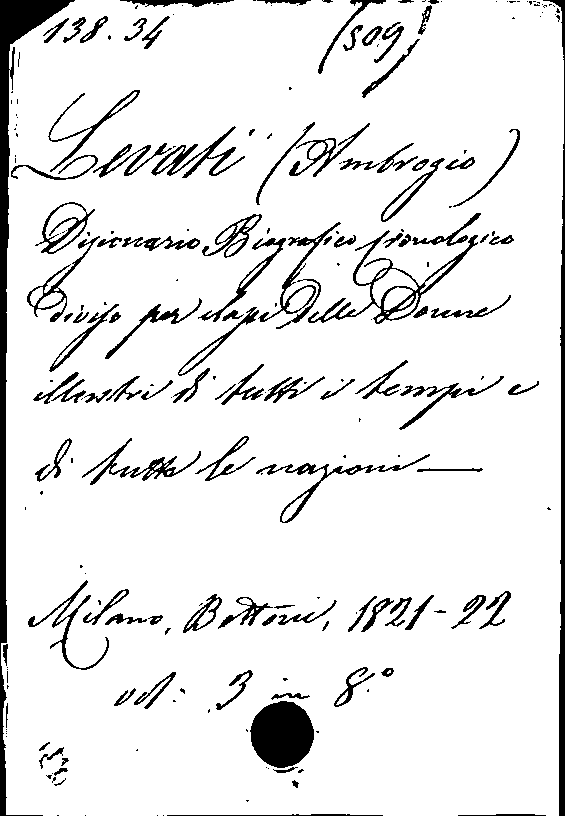 138.34 (509)
Levati (Ambrogio)
Dizionario Biografico cronologico
diviso per classi delle Donne
illustri di tutti i tempi e
di tutte le nazioni —
Milano, Bettoni, 1821-22
vol: 3 in 8.°